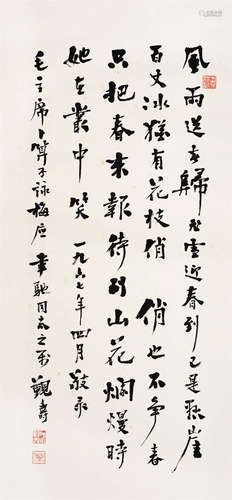 風雨送春歸飛雪迎春到已是懸崖
百丈冰猶有花枝俏 俏也不爭春
只把春來報待到山花爛熳時
她在叢中笑 一九六七年四月敬录
毛主席卜算子詠梅应 馳同志之属 觀壽